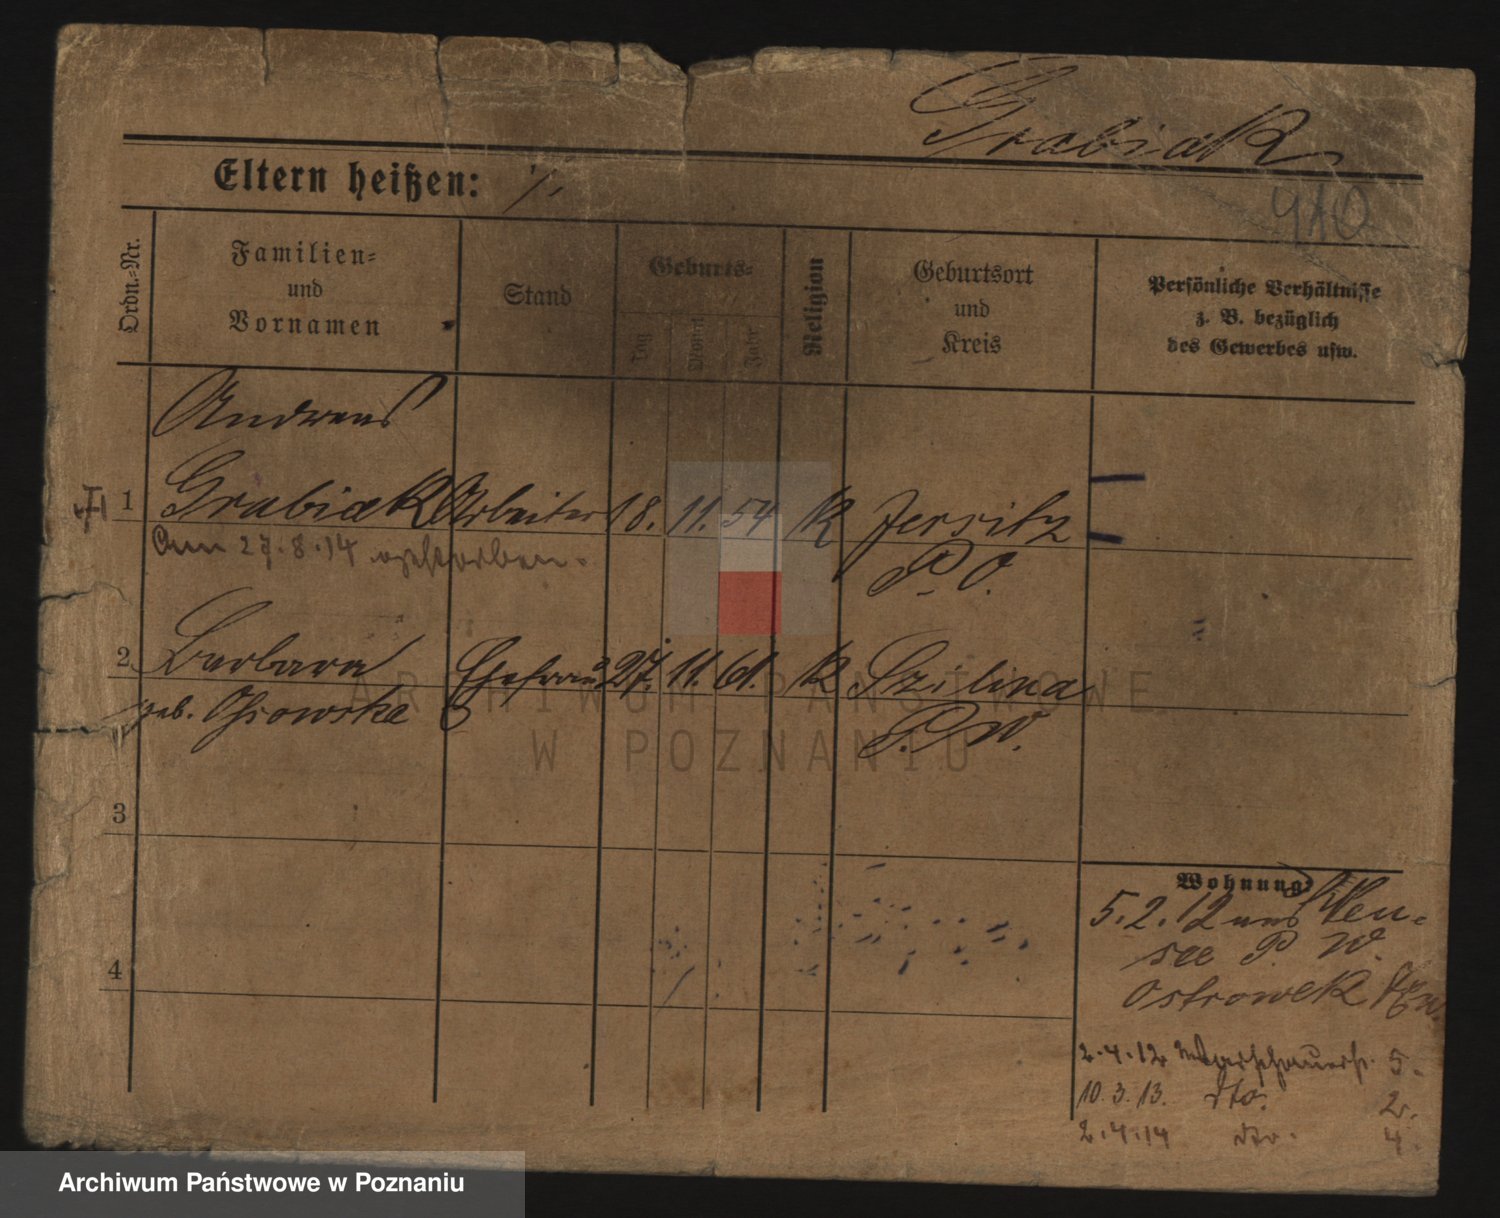 Grabiak
Eltern heißen: ./.
910
Ordn.-Nr.
Familien-
und
Vornamen
Stand
Geburts-
Tag
Monat
Jahr
Religion
Geburtsort
und
Kreis
Persönliche Verhältnisse
z. B. bezüglich
des Gewerbes usw.
Andreas
1 Grabiak Arbeiter 18. 11. 54 K Jersitz
P. O.
Am 27.8.14 gestorben.
2 Barbara Ehefrau 27. 11. 61. K Szelina
geb. P. W.
3
4
Wohnung:
5.2.12 aus
see P. W.
Ostrowek
2.4.12 Warschauerst. 5.
10.3.13. dto. 2.
2.4.14 dto. 4.
ARCHIWUM PAŃSTWOWE
W POZNANIU
Archiwum Państwowe w Poznaniu